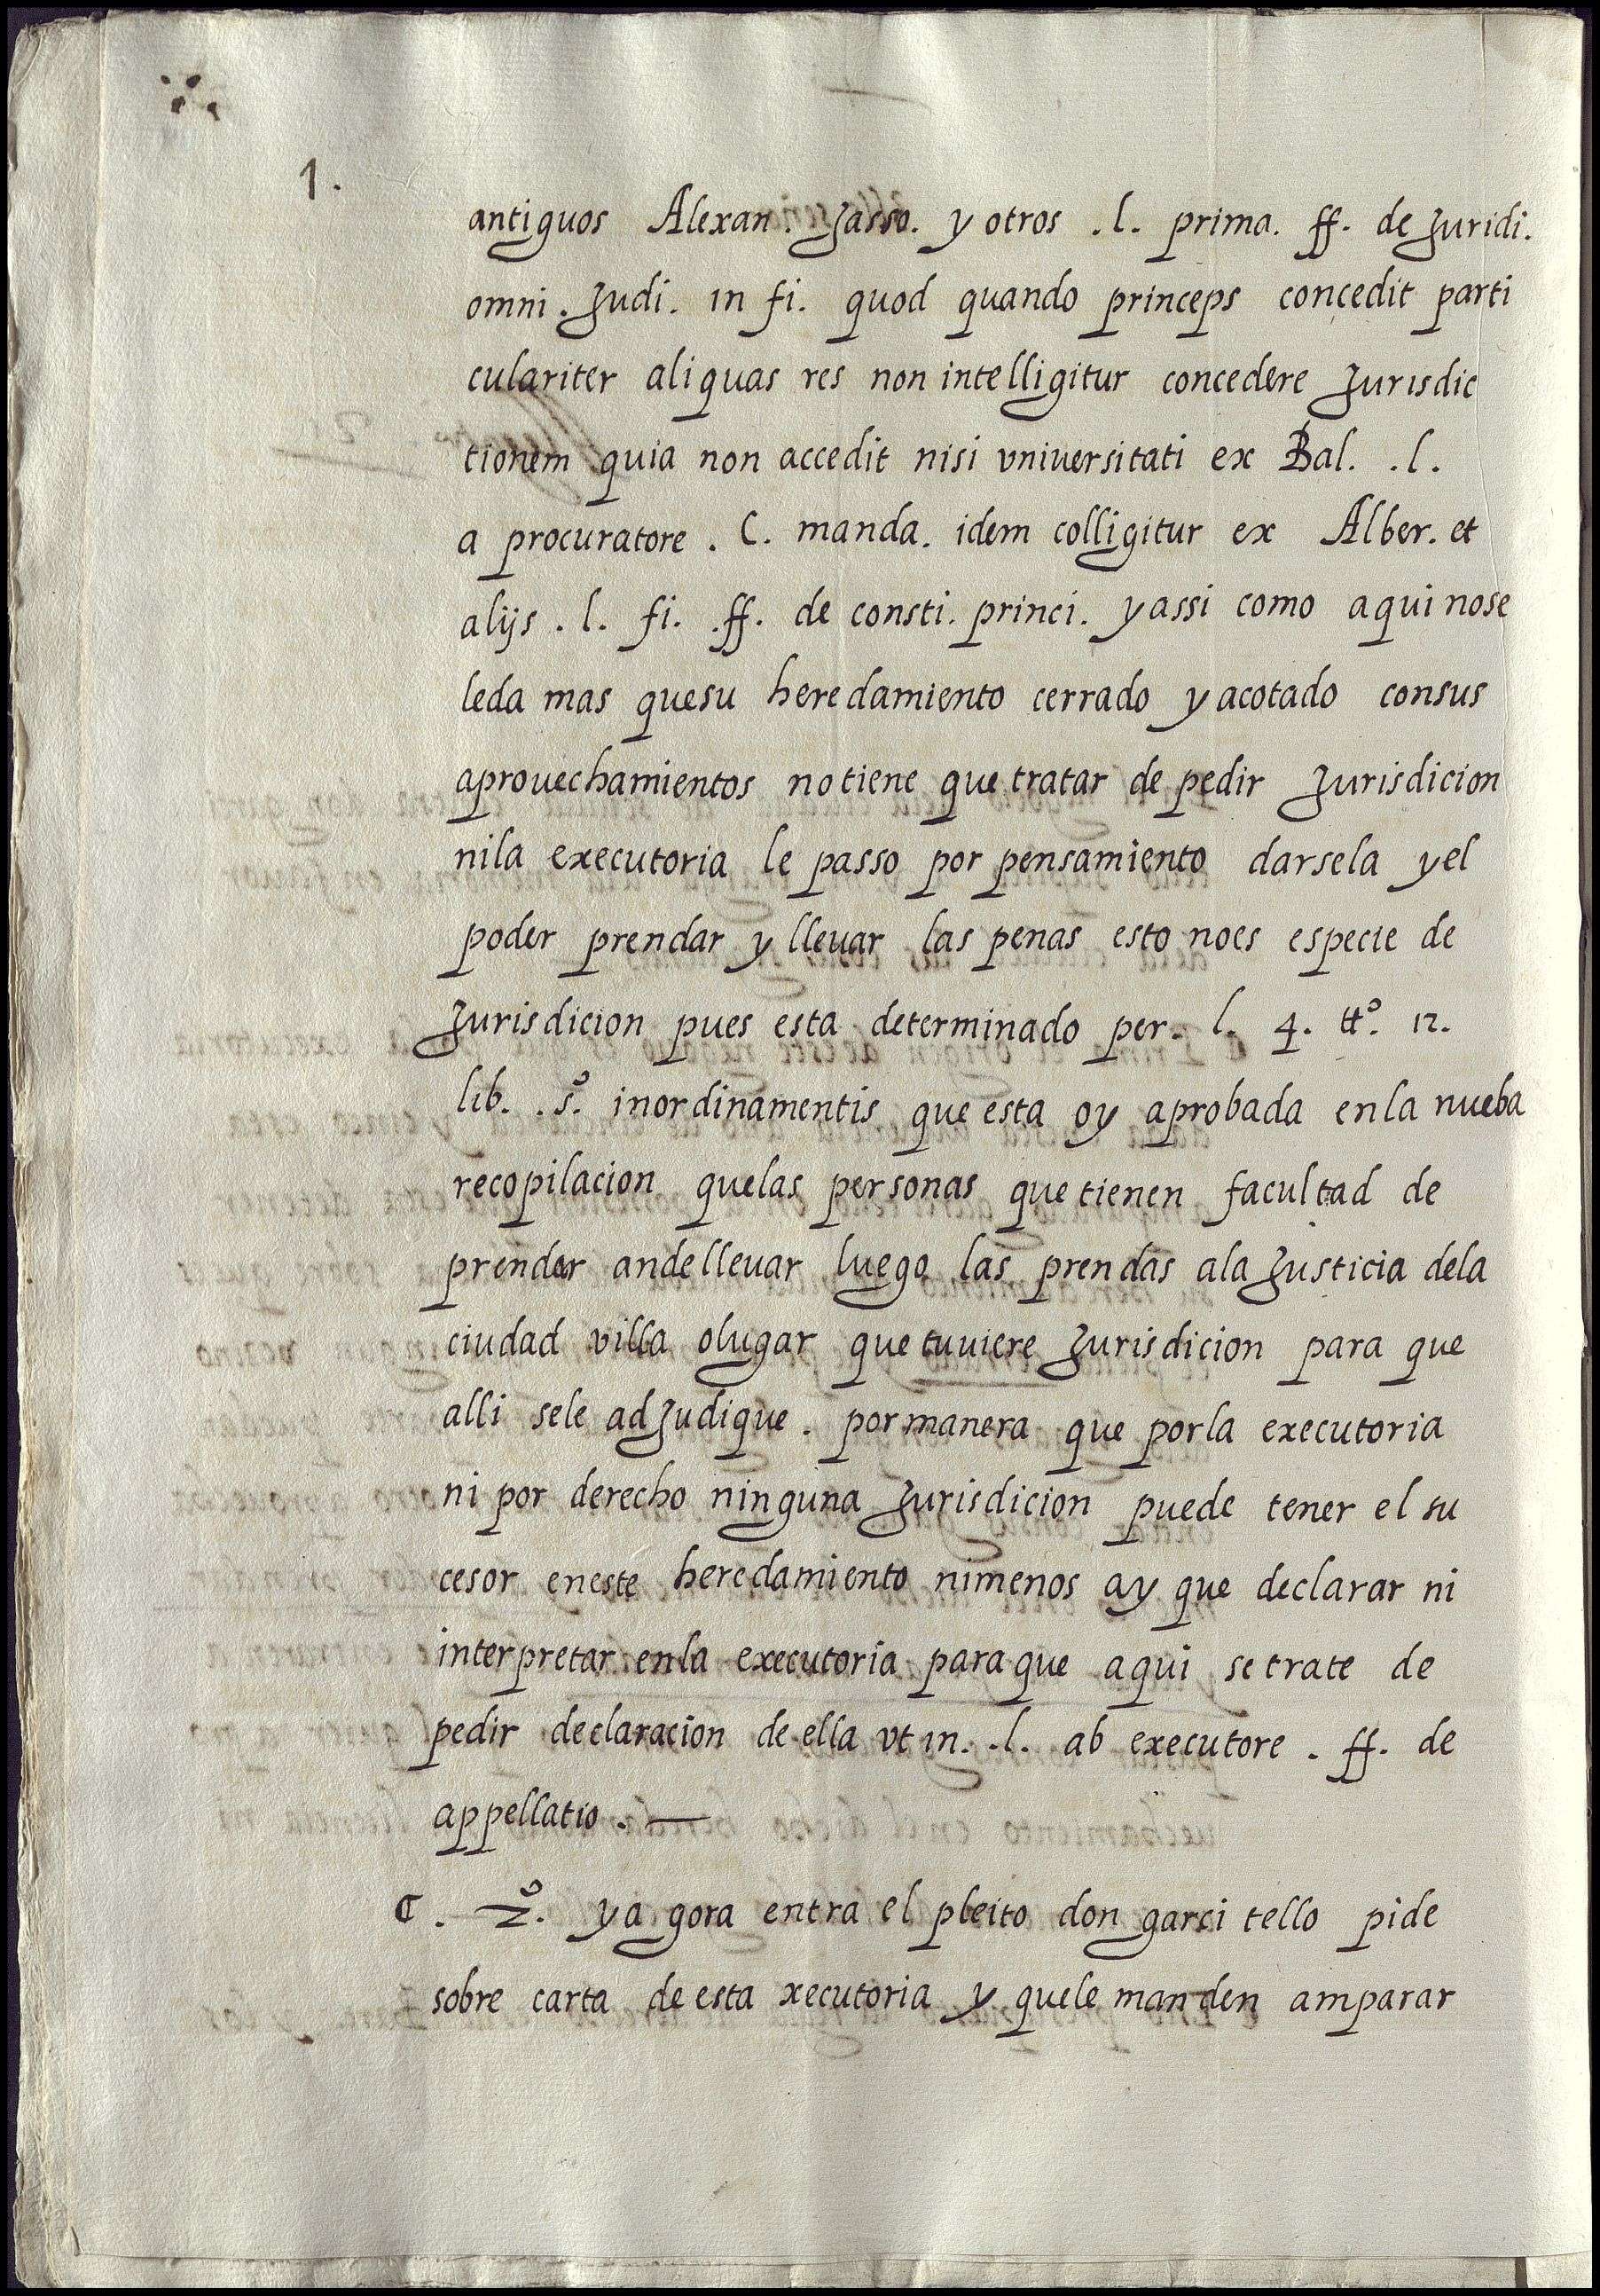 1.
antiguos Alexan. Jasso. y otros .l. prima. ff. de Juridi.
omni. Judi. in fi. quod quando princeps concedit parti
culariter aliquas res non intelligitur concedere Jurisdic
tionem quia non accedit nisi vniversitati ex Bal. .l.
a procuratore . C. manda. idem colligitur ex Alber. et
alijs . l. fi. .ff. de consti. princi. y assi como aqui nose
leda mas quesu heredamiento cerrado y acotado consus
aprouechamientos notiene que tratar de pedir Jurisdicion
nila executoria le passo por pensamiento darsela yel
poder prendar y lleuar las penas esto noes especie de
Jurisdicion pues esta determinado per. l. 4. ttº. 12.
lib. .5º. inordinamentis que esta oy aprobada enla nueba
recopilacion quelas personas que tienen facultad de
prendar andelleuar luego las prendas ala Justicia dela
ciudad villa olugar que tuuiere Jurisdicion para que
alli sele adJudique . por manera que porla executoria
ni por derecho ninguna Jurisdicion puede tener el su
cesor eneste heredamiento nimenos ay que declarar ni
interpretar enla executoria para que aqui se trate de
pedir declaracion de ella vt in. .l. ab executore . ff. de
appellatio . —
C . 2º. ya gora entra el pleito don garci tello pide
sobre carta de esta xecutoria y quele manden amparar